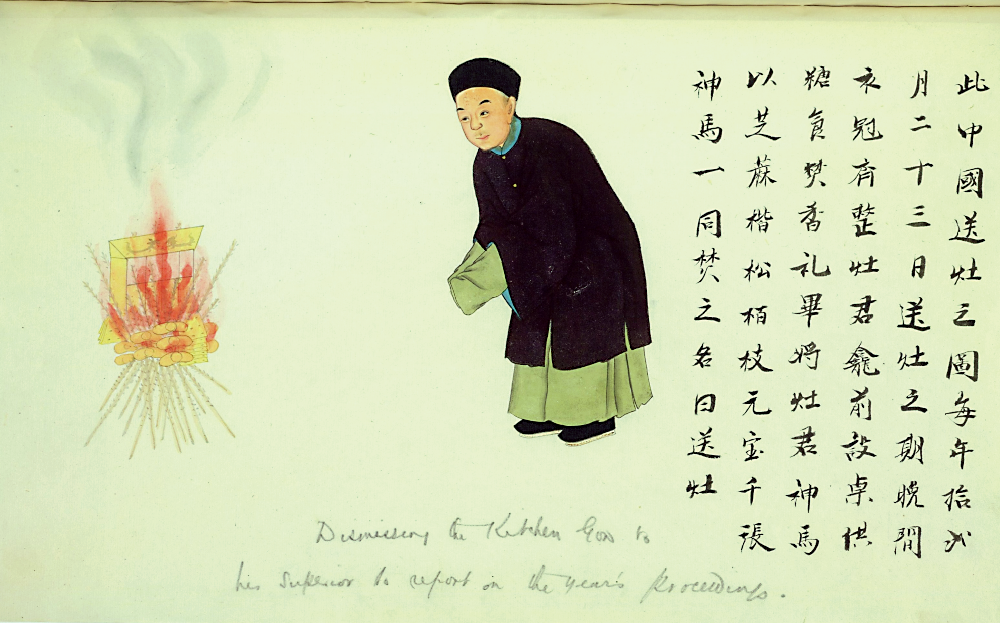 此中國送灶之圖每年拾弍
月二十三日送灶之期晚間
衣冠斉整灶君龕前設桌供
糖食焚香礼畢將灶君神馬
以芝蔴楷松栢枝元宝千張
神馬一同焚之名曰送灶
Dismissing the Kitchen God to
his superior to report on the year's proceedings.